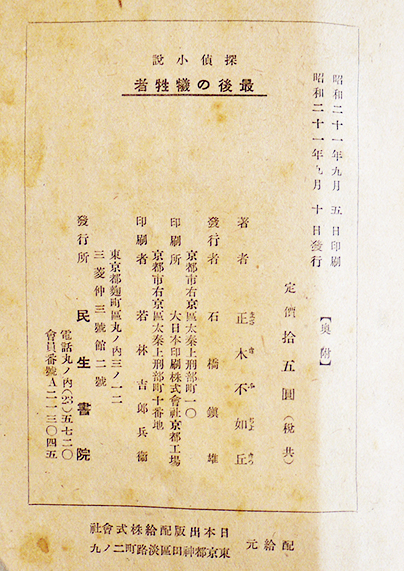 昭和二十一年九月 五 日印刷
昭和二十一年九月 十 日發行
【奥附】
探偵小説
最後の犧牲者
定價拾五圓(税共)
著者 正木不如丘
發行者 石橋鎭雄
京都市右京區太秦上刑部町一〇
印刷所 大日本印刷株式會社京都工場
京都市右京區太秦上刑部町十番地
印刷者 若林吉郎兵衞
東京都麴町區丸ノ内三ノ一二
三菱仲三號館二號
發行所 民生書院
電話丸ノ内(23)五七二〇
會員番號A二一三〇四五
配給元
日本出版配給株式會社
東京都神田區淡路町二ノ九